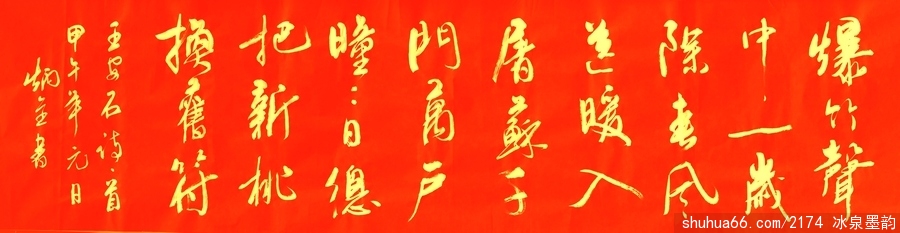 爆竹聲
中一歲
除春風
送暖入
屠蘇千
門萬戶
曈〻日總
把新桃
換舊符
王安石詩一首
甲午年元日
書
shuhua66.com/2174 冰泉墨韵